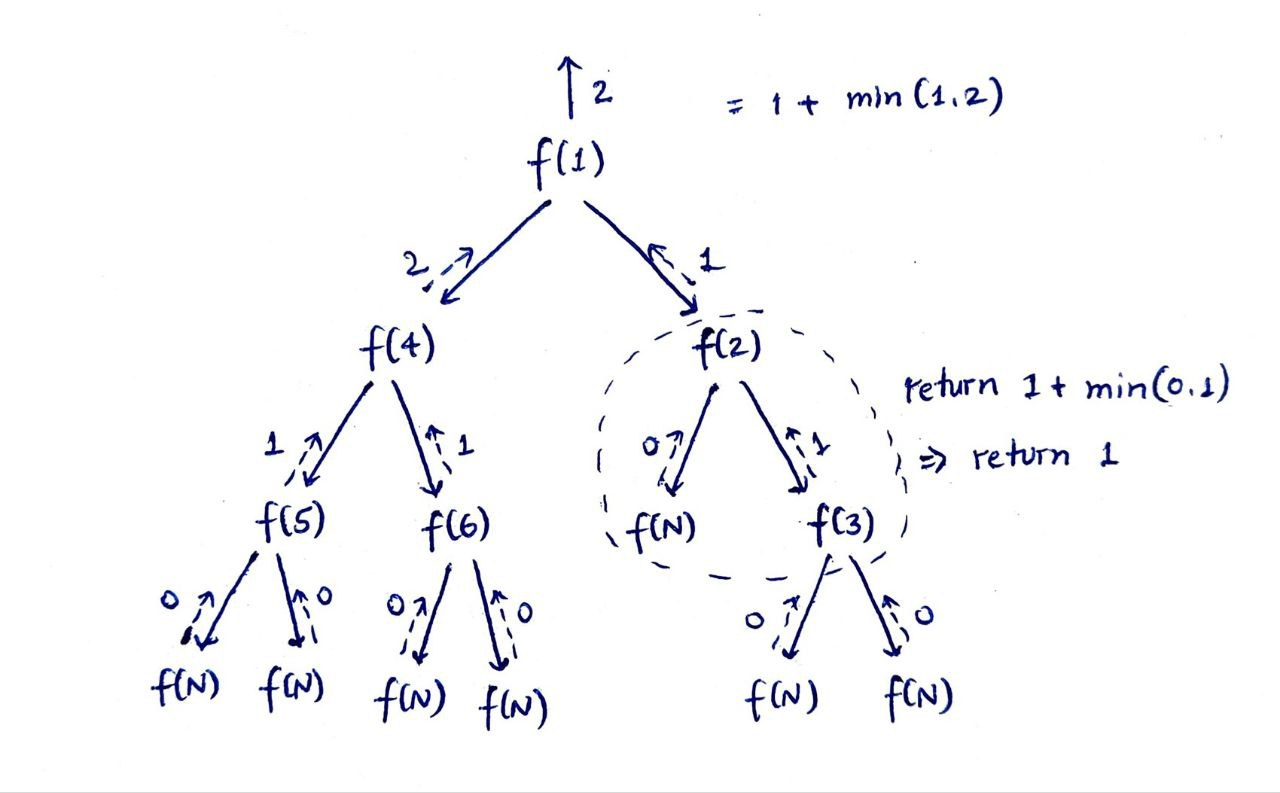 2
= 1 + min(1,2)
f(1)
2
1
f(4)
f(2)
return 1 + min(0,1)
1
1
0
1
=> return 1
f(5)
f(6)
f(N)
f(3)
0
0
0
0
0
0
f(N)
f(N)
f(N)
f(N)
f(N)
f(N)